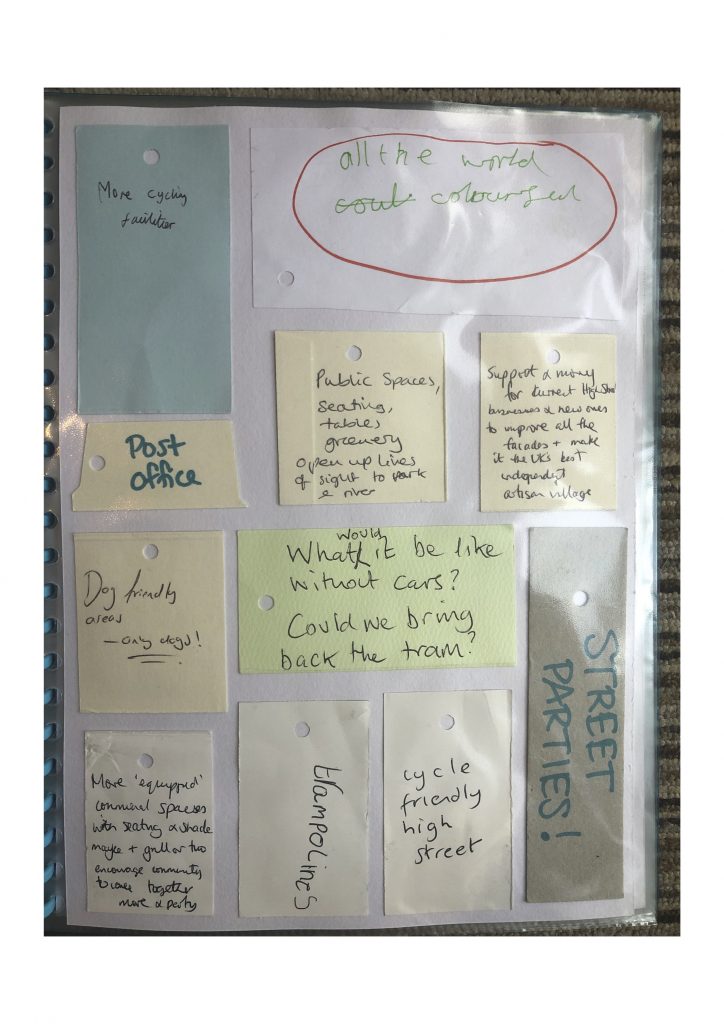 More cycling
facilities
all the world
coulo colourful
Public Spaces,
seating,
tables
greenery
open up lines
of sight to park
& river
Support & money
for current High Street
businesses & new ones
to improve all the
facades + make
it the UK's best
independent
artisan village
Post
office
Dog friendly
areas
— only dogs!
would
What it be like
without cars?
Could we bring
back the tram?
STREET
PARTIES!
More 'equipped'
communal spaces
with seating & shade
maybe + grill or two
encourage community
to come together
more & party
trampolines
cycle
friendly
high
street